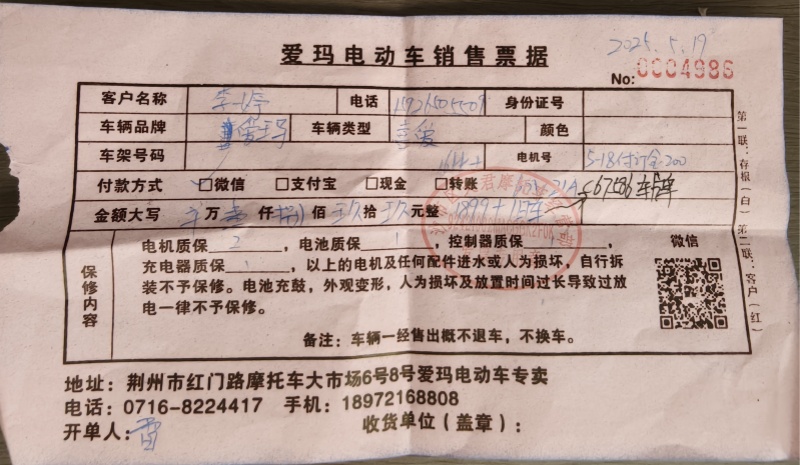 爱玛电动车销售票据
2025.5.19
No: 0004986
客户名称 李婷 电话 身份证号
车辆品牌 爱玛 车辆类型 颜色
车架号码 电机号 5-18付订金200
付款方式 ☐微信 ☐支付宝 ☐现金 ☐转账 67586 车牌
金额大写 万 仟 捌 佰 玖 拾 玖 元整 1899+
保修内容
电机质保 2 ,电池质保 1 ,控制器质保 ,
充电器质保 1 ,以上的电机及任何配件进水或人为损坏,自行拆
装不予保修。电池充鼓,外观变形,人为损坏及放置时间过长导致过放
电一律不予保修。
备注:车辆一经售出概不退车,不换车。
微信
第一联:存根(白) 第二联:客户(红)
地址:荆州市红门路摩托车大市场6号8号爱玛电动车专卖
电话:0716-8224417 手机:18972168808
开单人:雷 收货单位(盖章):